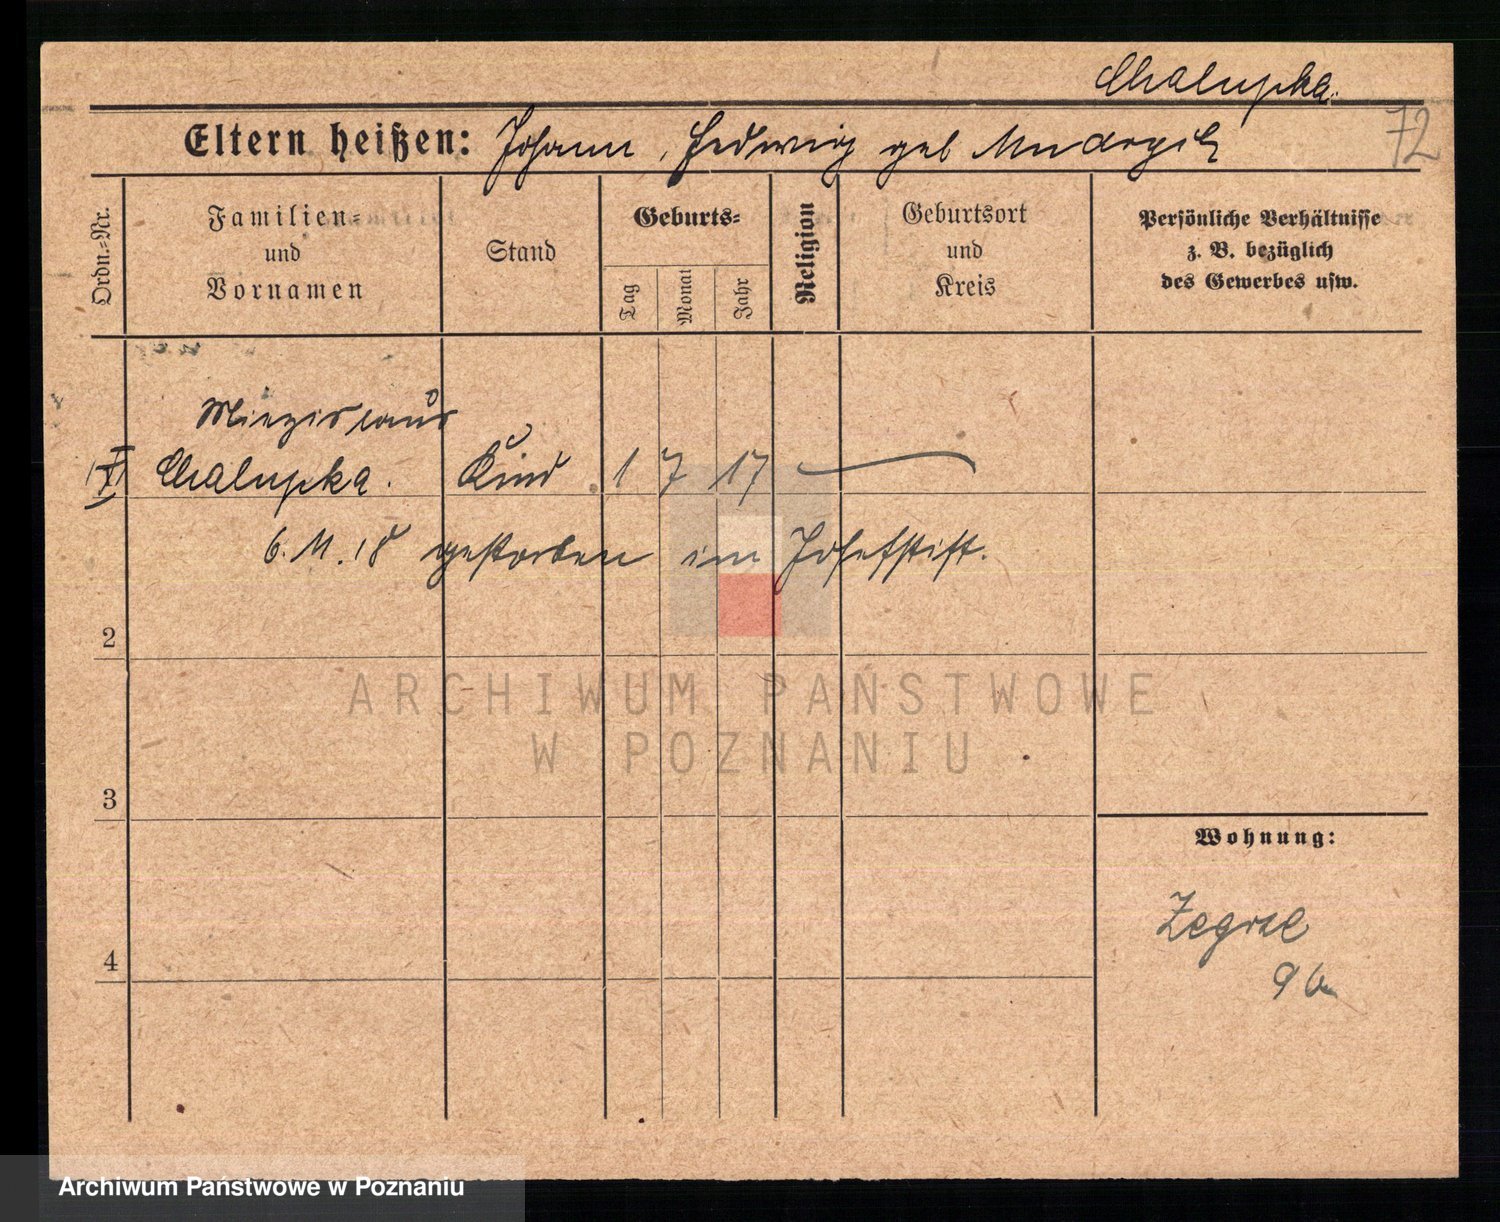 Chalupka.
Eltern heißen: Johann, Hedwig geb
72
Ordn.=Nr.
Familien=
und
Vornamen
Stand
Geburts=
Tag
Monat
Jahr
Religion
Geburtsort
und
Kreis
Persönliche Verhältnisse
z. B. bezüglich
des Gewerbes usw.
Miezislaus
Chalupka. Kind 1 7 17
6. 11. 18 gestorben im Josefstift.
2
3
4
Wohnung:
Zegrze
ARCHIWUM PAŃSTWOWE
W POZNANIU
Archiwum Państwowe w Poznaniu